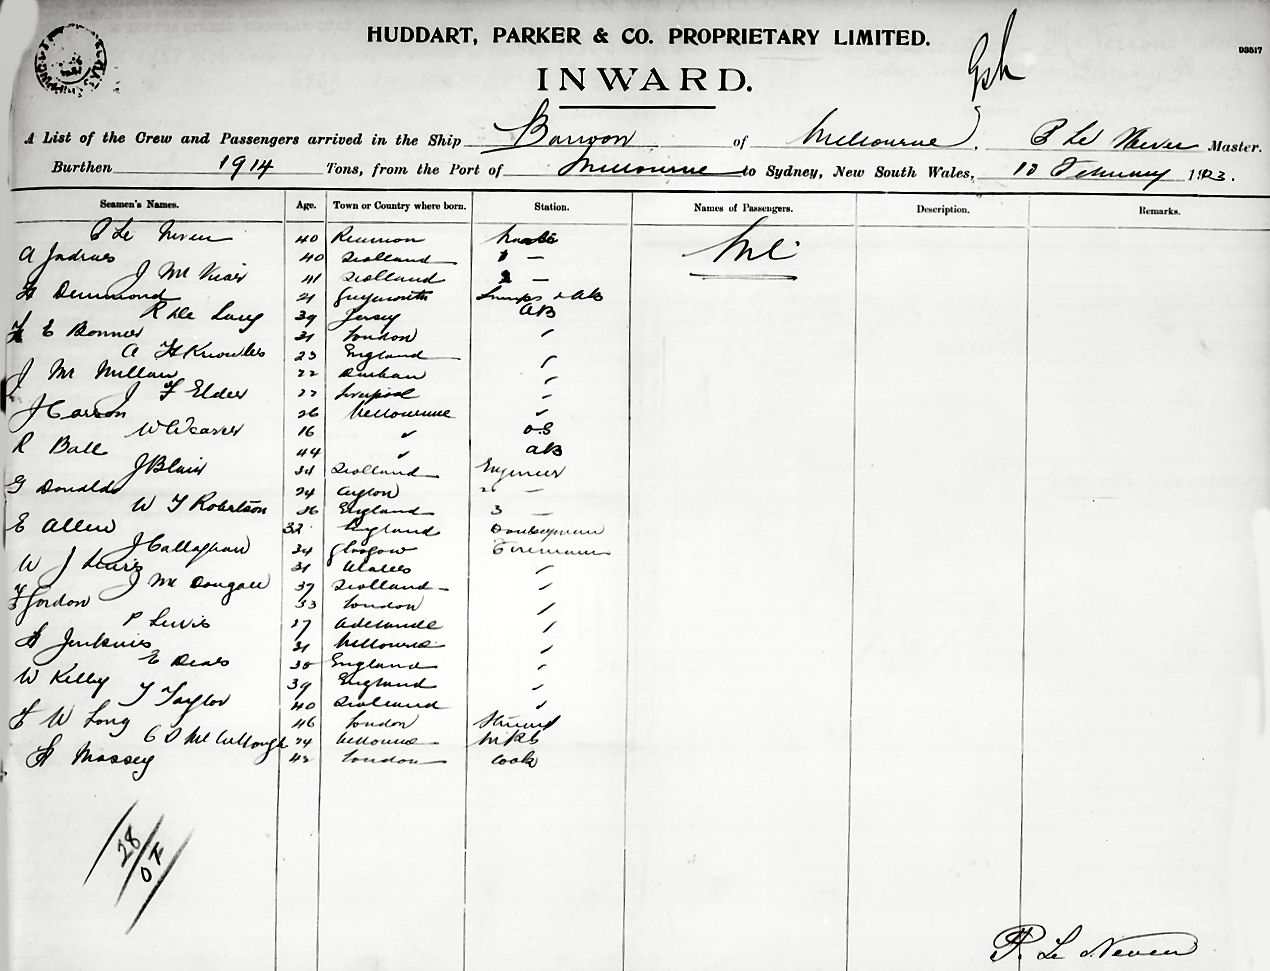 HUDDART, PARKER & CO. PROPRIETARY LIMITED.
93517
INWARD.
A List of the Crew and Passengers arrived in the Ship Barwon of Melbourne, P Le Neven Master.
Burthen 1914 Tons, from the Port of Melbourne to Sydney, New South Wales, 13 February 1923.
Seamen's Names. Age. Town or Country where born. Station. Names of Passengers. Description. Remarks.
P Le Neven 40 Reunion Master Nil
A 40 Scotland 1 —
J Mc 41 Scotland 2 —
H Drummond 21 Lamps & AB
R De Lacy 39 Jersey AB
E Bonner 31 London "
A H Knowles 23 England "
J Mc Millan 22 Durban "
J F Elder 22 Liverpool "
J Carson 26 Melbourne "
W Weaver 16 " OS
R Ball 44 " AB
J Blair 34 Scotland Engineer
G Donalds 24 Ceylon 2 —
W F Robertson 26 England 3 —
E Allen 32 England Donkeyman
J Callaghan 34 Glasgow Firemann
W J 31 Wales "
J Mc Dougall 37 Scotland "
F Gordon 33 London "
P Lewis 27 Adelaide "
H Jenkins 31 Melbourne "
E Deas 30 England "
W Kelly 39 England "
T Taylor 40 Scotland "
F W Long 46 London Steward
C D McCullough 24 Melbourne
H Massey 42 London Cook
28
P. Le Neven